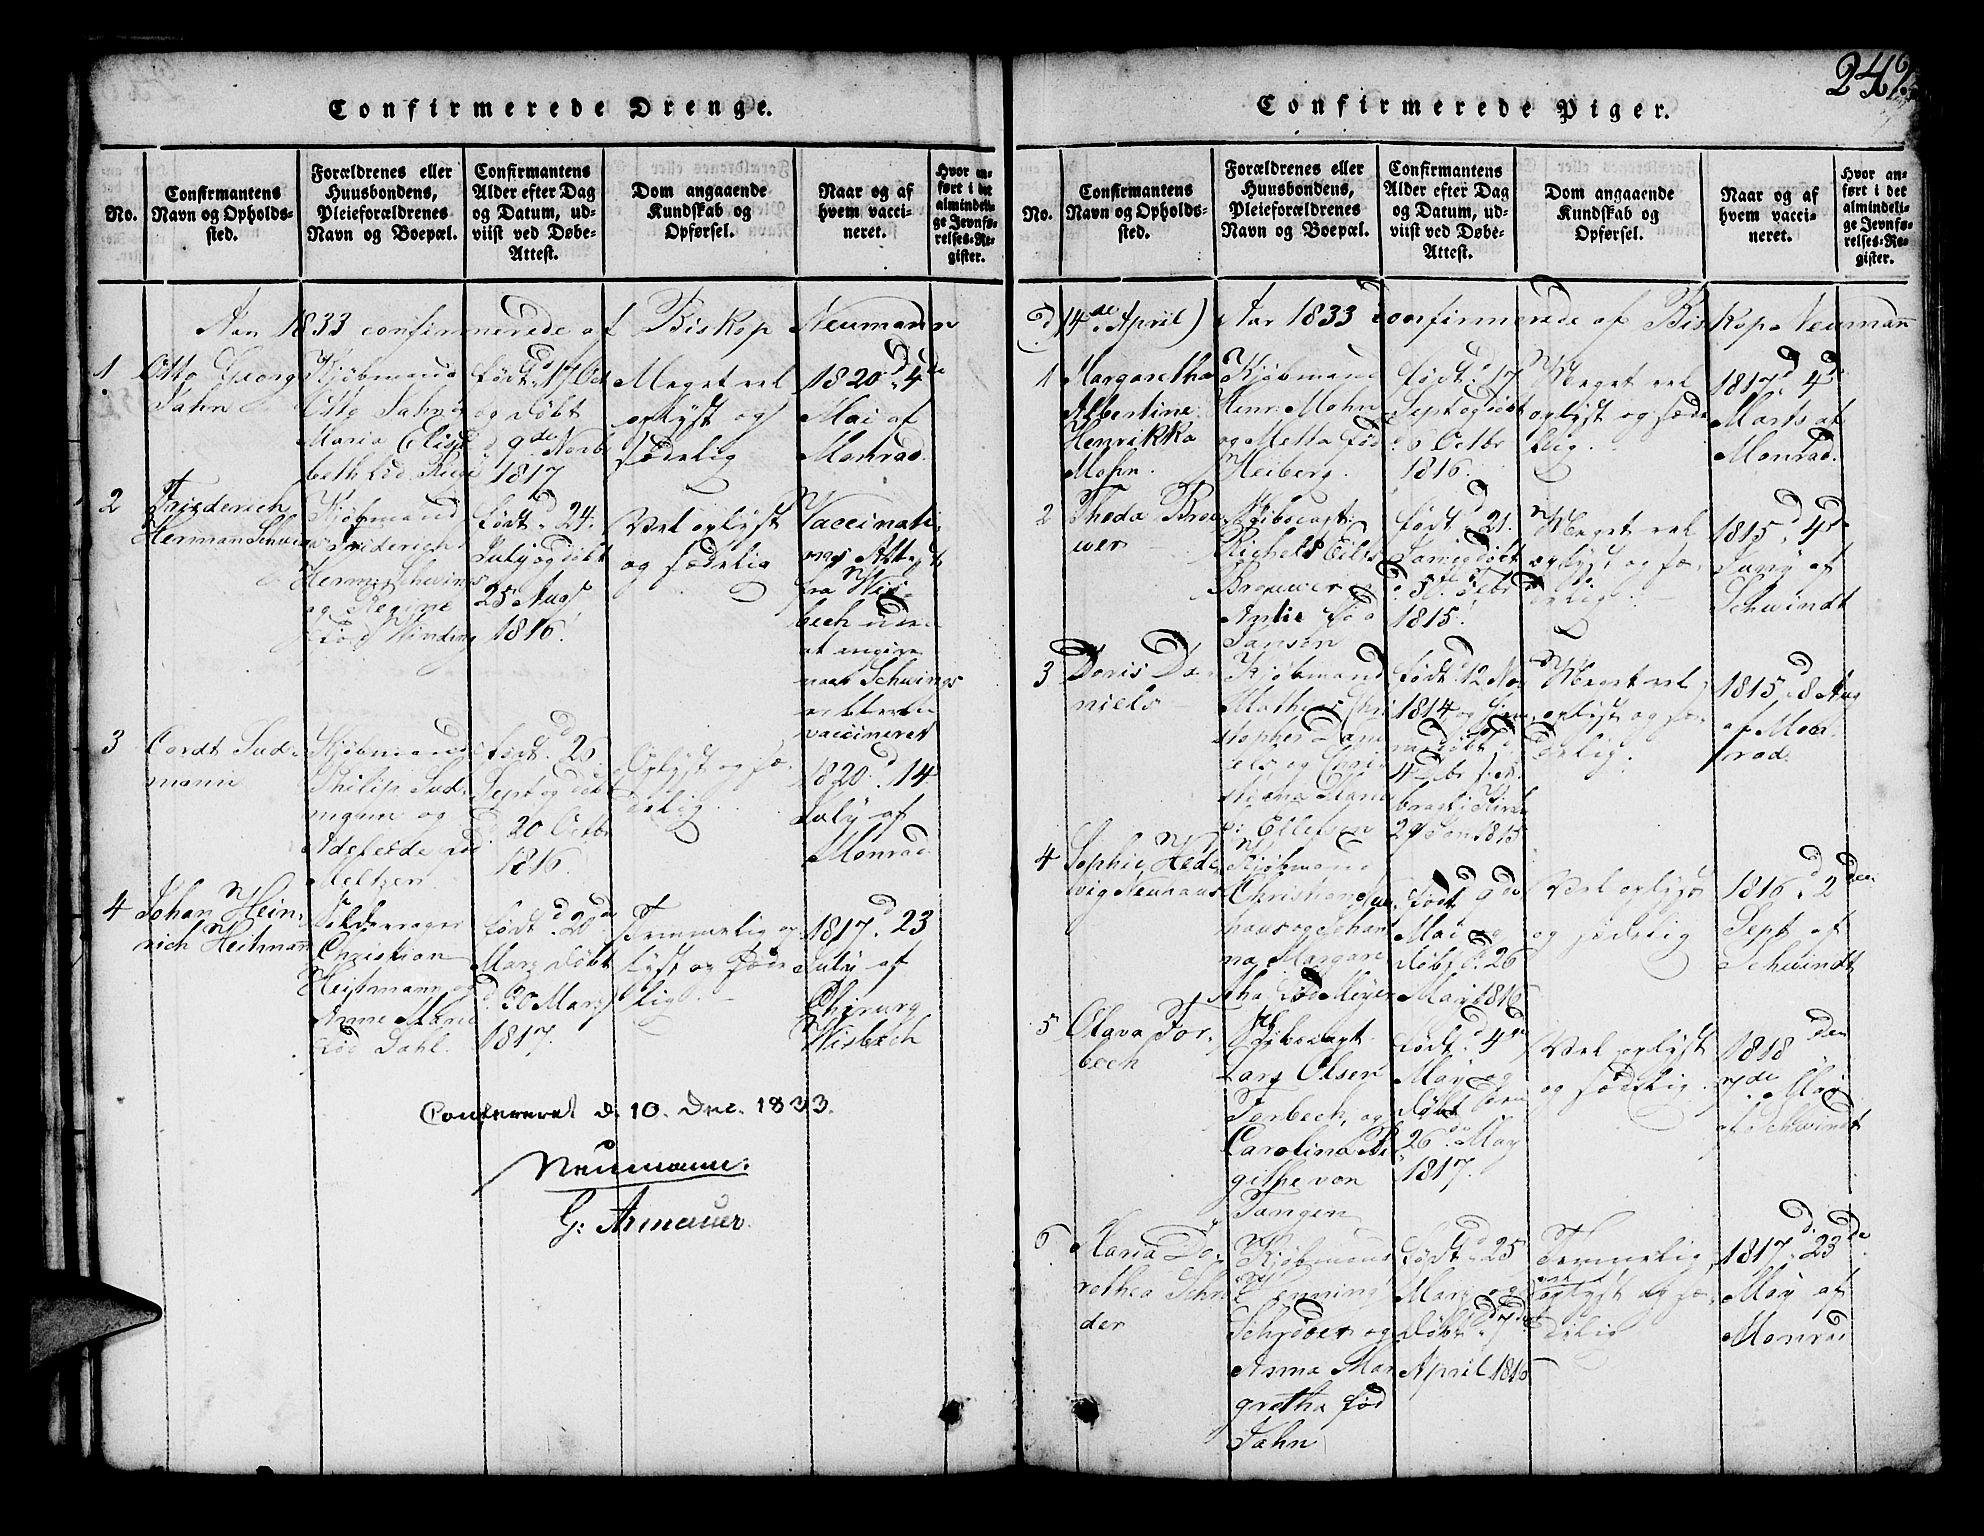 Confirmerede Drenge.
No.
Confirmantens
Navn og Opholds-
sted.
Forældrenes eller
Huusbondens,
Pleieforældrenes
Navn og Boepæl.
Confirmantens
Alder efter Dag
og Datum, ud-
viist ved Døbe-
Attest.
Dom angaaende
Kundskab og
Opførsel.
Naar og af
hvem vacci-
neret.
Hvor an-
ført i det
almindeli-
ge Jevnfø-
relses-Re-
gister.
Aar 1833 confirmerede af Biskop Neumann
1
Otto Georg
Jahn
Kjøbmand
Otto Jahn og
Maria Elisa
beth fød
født d. 17 Oct
og døbt
d. 9de Novb
1817
Meget vel
oplyst og
sædelig
1820 d. 4de
Mai af
Monrad.
2
Friederich
Herman
Kjøbmand
Friderich
Herm. Schwings
og Regine
fød Winding
født d. 24.
July og døbt
25 Aug
1816.
Vel oplyst
og sædelig
Vaccinati
ons Attest
fra Wis-
bech uden
at angive
naar Schwings
er bleven
vaccineret
3
Cordt Sud-
mann
Kjøbmand
Philip Sud
mann og
Adeleide fød
Meltzer
født d. 26
Sept og døbt
d. 20 Octbr
1816.
Oplyst og sæ-
delig.
1820. d. 14
July af
Monrad.
4
Johan Hein-
rich Heitmann
Christian
Heitmann og
Anne Marie
fød Dahl.
født d. 20de
Marz døbt
d. 30 Marz
1817.
Temmelig op
lyst og sæde
lig.
1817. d. 23
July af
Chirurg
Wisbech
Confereret d. 10. Dec. 1833.
Neumann.
G: Armauer.
242.
Confirmerede Piger.
No.
Confirmantens
Navn og Opholds-
sted.
Forældrenes eller
Huusbondens,
Pleieforældrenes
Navn og Boepæl.
Confirmantens
Alder efter Dag
og Datum, ud-
viist ved Døbe-
Attest.
Dom angaaende
Kundskab og
Opførsel.
Naar og af
hvem vacci-
neret.
Hvor an-
ført i det
almindeli-
ge Jevnfø-
relses-Re-
gister.
d. 14de April) Aar 1833 confirmerede af Biskop Neumann
1
Margaretha
Albertine
Henrikka
Mohn.
Kjøbmand
Henr. Mohn
og Metta fød
Heiberg.
født d. 17
Sept og døbt
d. 6 Octbr
1816.
Meget vel
oplyst og sæde
lig.
1817 d. 4de
Marts af
Monrad.
2
Theda Brou
wer
Richels Eils
Brouwer og
Antie fød
Janson
født d. 21.
Jan og døbt
d. 5te Febr
1815.
Meget vel
oplyst og sæ-
delig.
1815 d. 4de
Juny af
Schwindt
3
Doris Da-
niels
Kjøbmand
Mathias Chri
stopher Dani
els og Chri
stiana Diana
Ellefsen
født d. 12 Nov
1814, og hjem
medøbt d.
4 Dbr frem
bragt i Kirk
29 Jan 1815
Meget vel
oplyst og sæ-
delig.
1815 d 8 Aug
af Mon
rad.
4
Sophie Hede
wig Neuhaus
Kjøbmand
Christian Neu-
haus og Johan
na Margare
tha fød Meyer
født d. 9de
Mai og
døbt d. 26
May 1816
Vel oplyst
og sædelig
1816 d. 2den
Sept af
Schwindt
5
Olava For-
bech
Lars Olsen
Forbech, og
Carolina Bir
githe von
Tangen
født d. 4de
May og
døbt
26de May
1817.
Vel oplyst
og sædelig.
1818 den
7de May
af Schwindt
6
Maria Do-
rothea Schrø
der
Kjøbmand
Henning
Schrøder og
Anna Mar
gretha fød
Jahn
født d. 25
Marz og
døbt d. 7de
April 1816
Temmelig
oplyst og sæ-
delig
1817 d. 23de
May af
Monrad